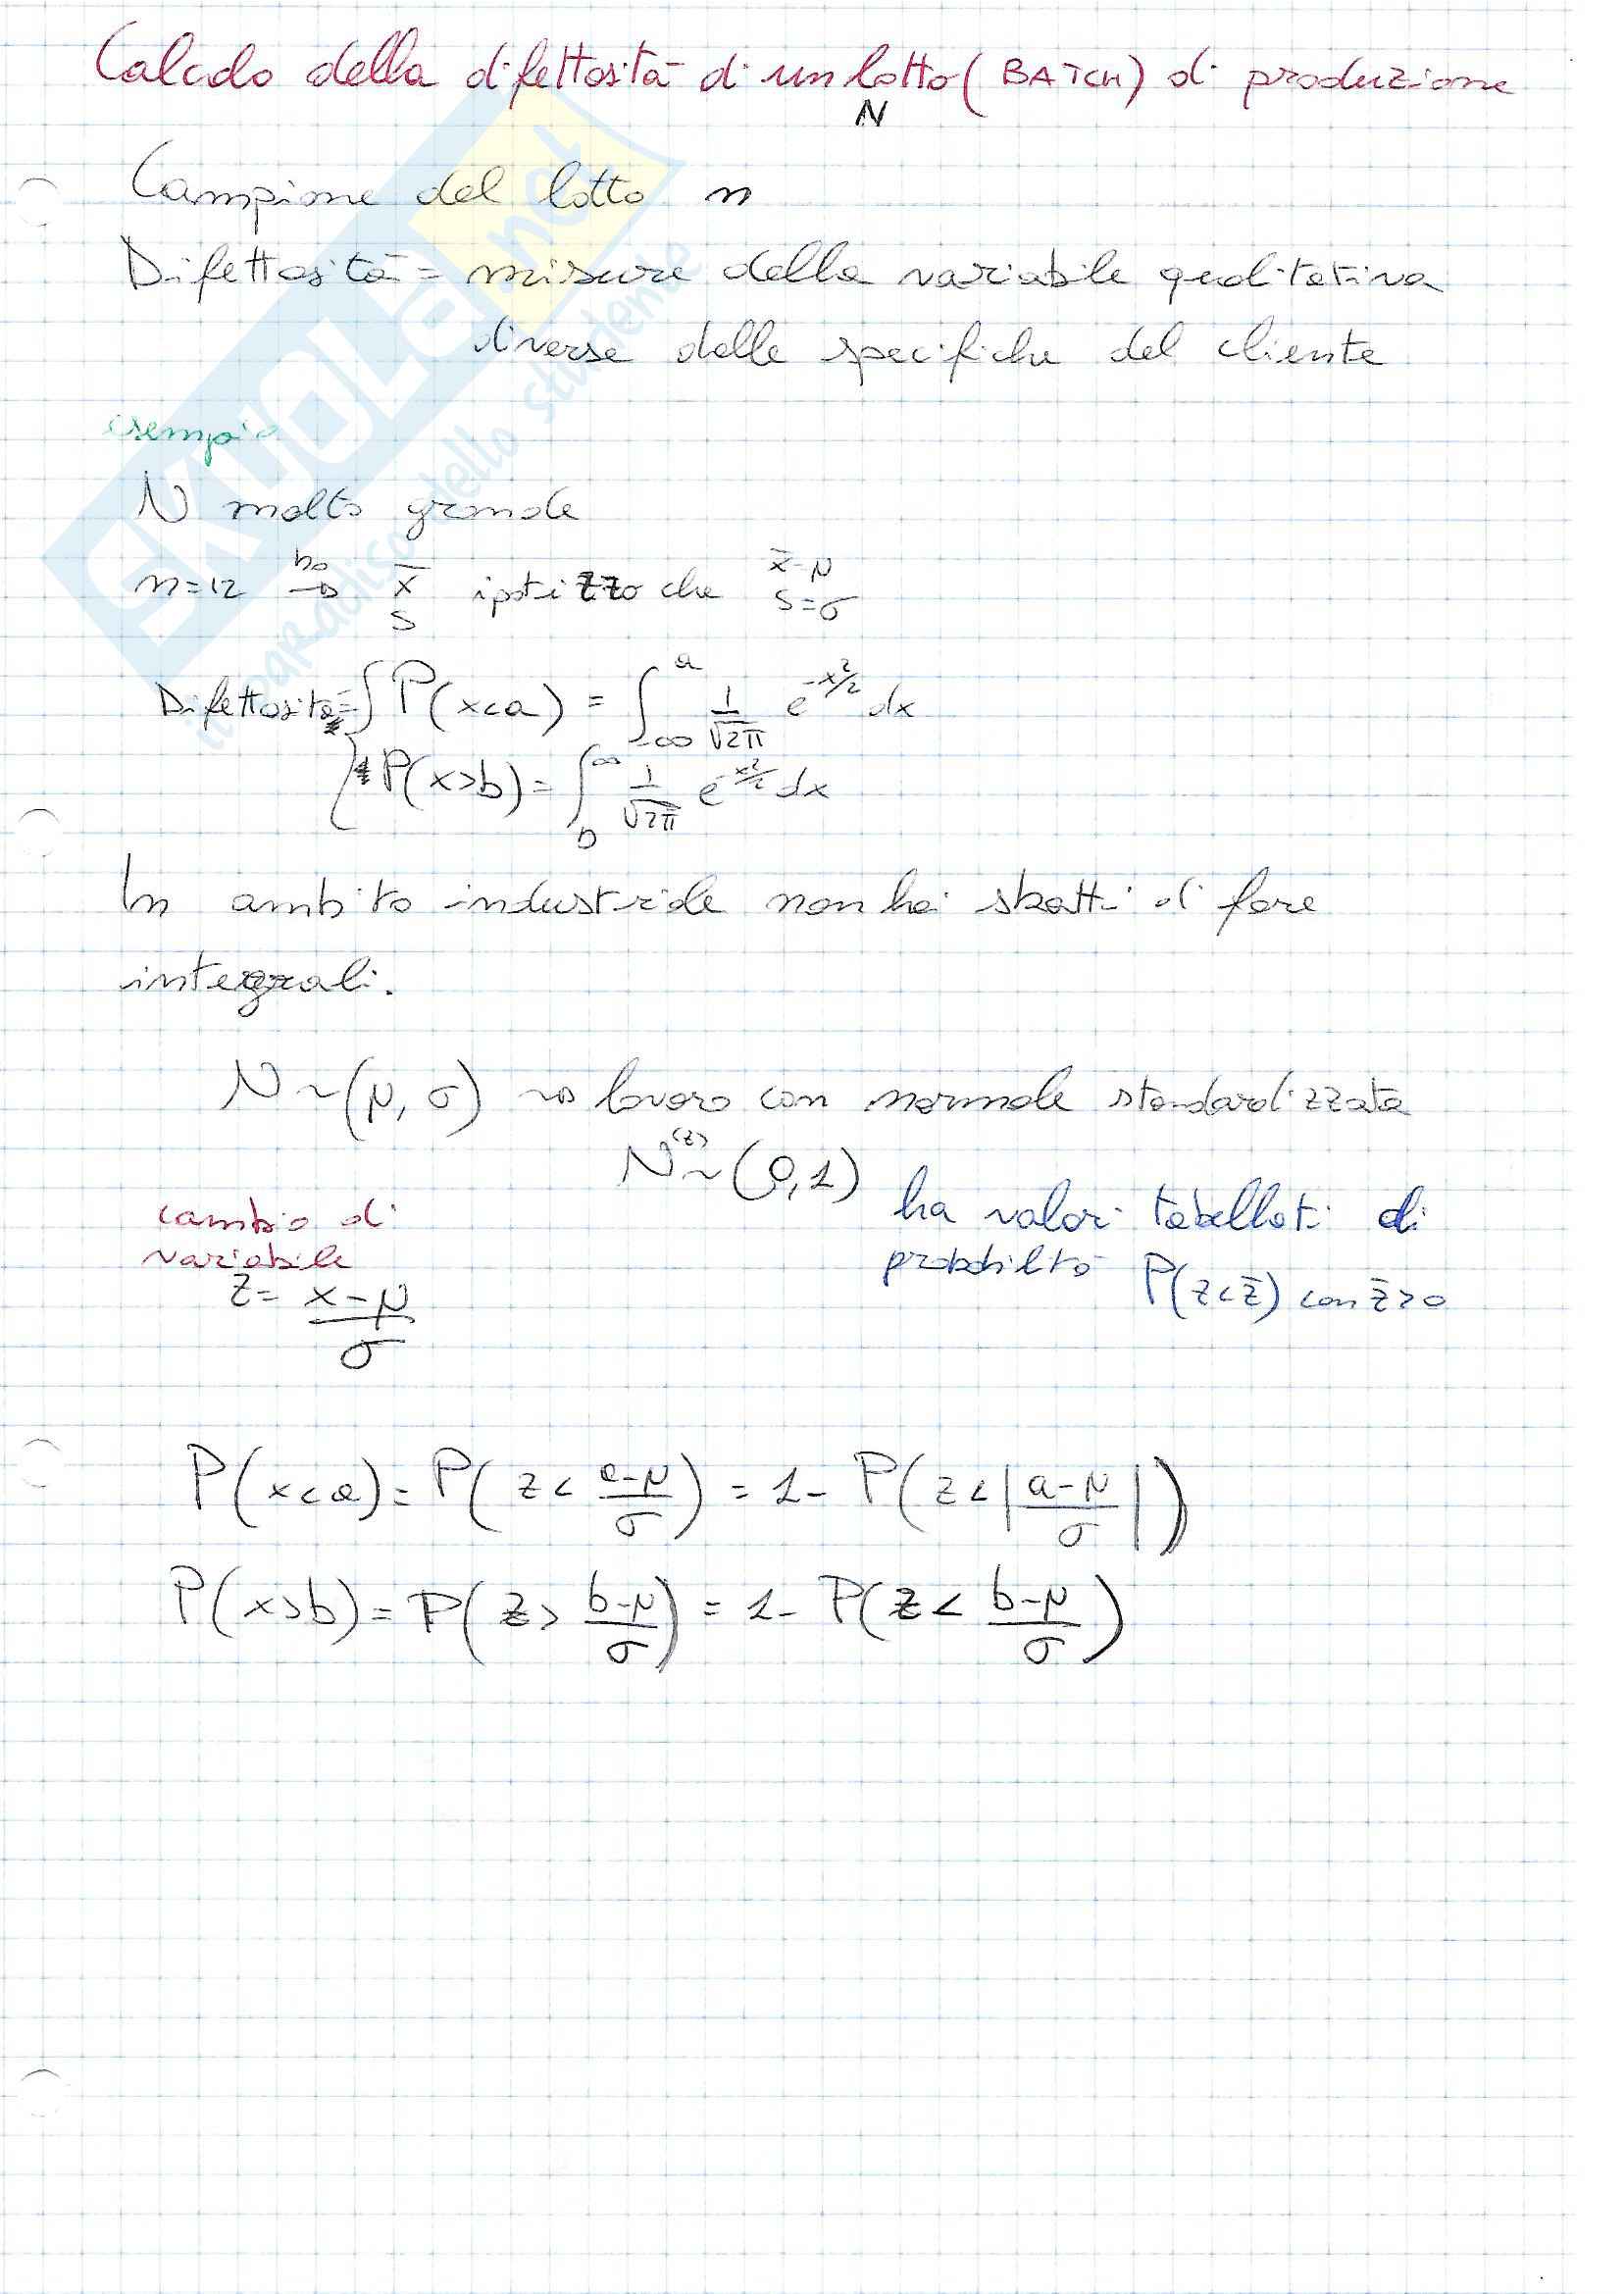 Calcolo della difettosità di un lotto (BATCH) di produzione
N
Campione del lotto n
Difettosità = misure della variabile qualitativa
diverse dalle specifiche del cliente
esempio
N molto grande
n=12 ho → x̄ ipotizzo che x̄=μ
S S=σ
Difettosità = { P(x<a) = ∫_{-∞}^{a} 1/√2π e^{-x²/2} dx
+ P(x>b) = ∫_{b}^{∞} 1/√2π e^{-x²/2} dx
In ambito industriale non hai sbatti di fare
integrali.
N~(μ, σ) → lavoro con normale standardizzata
N(z)~(0,1) ha valori tabellati di
probabilità P(z<z̄) con z̄>0
cambio di
variabile
z = (x-μ)/σ
P(x<a) = P(z < (a-μ)/σ) = 1- P(z < |(a-μ)/σ|)
P(x>b) = P(z > (b-μ)/σ) = 1- P(z < (b-μ)/σ)
SKUOLA.net
il paradiso dello studente